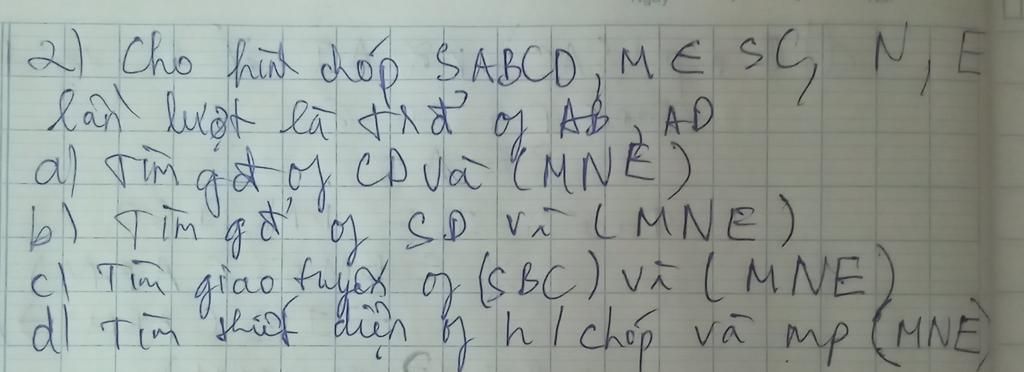 2) Cho hìn chóp SABCD, M ∈ SC, N, E
lần lượt là trđ' of AB, AD
a) Tìm gđ of CD và (MNE)
b) Tìm gđ' of SD và (MNE)
c) Tìm giao tuyến of (SBC) và (MNE)
d) Tìm thiết diện of h/chóp và mp (MNE)